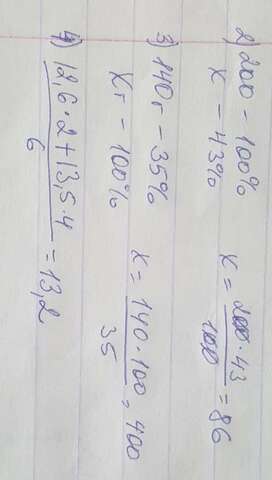 2) 200 - 100%
X - 43%
X = 200·43/100 = 86
3) 140г - 35%
Xг - 100%
X = 140·100/35 = 400
4) 12,6·2+13,5·4/6 = 13,2